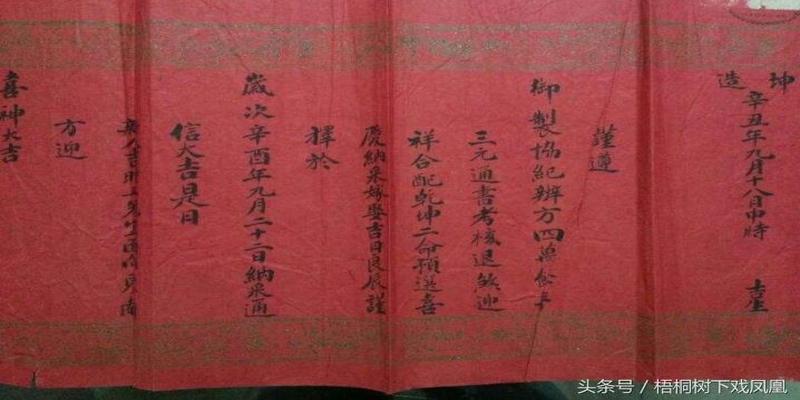 坤造
辛丑年九月十八日申時
吉星
謹遵
御製協紀辨方四萬餘年
三元通書考核退煞迎
祥合配乾坤二命預選喜
慶納采嫁娶吉日良辰謹
擇於
歲次辛酉年九月二十二日納采通
信大吉是日
方迎
喜神大吉
头条号／梧桐树下戏凤凰